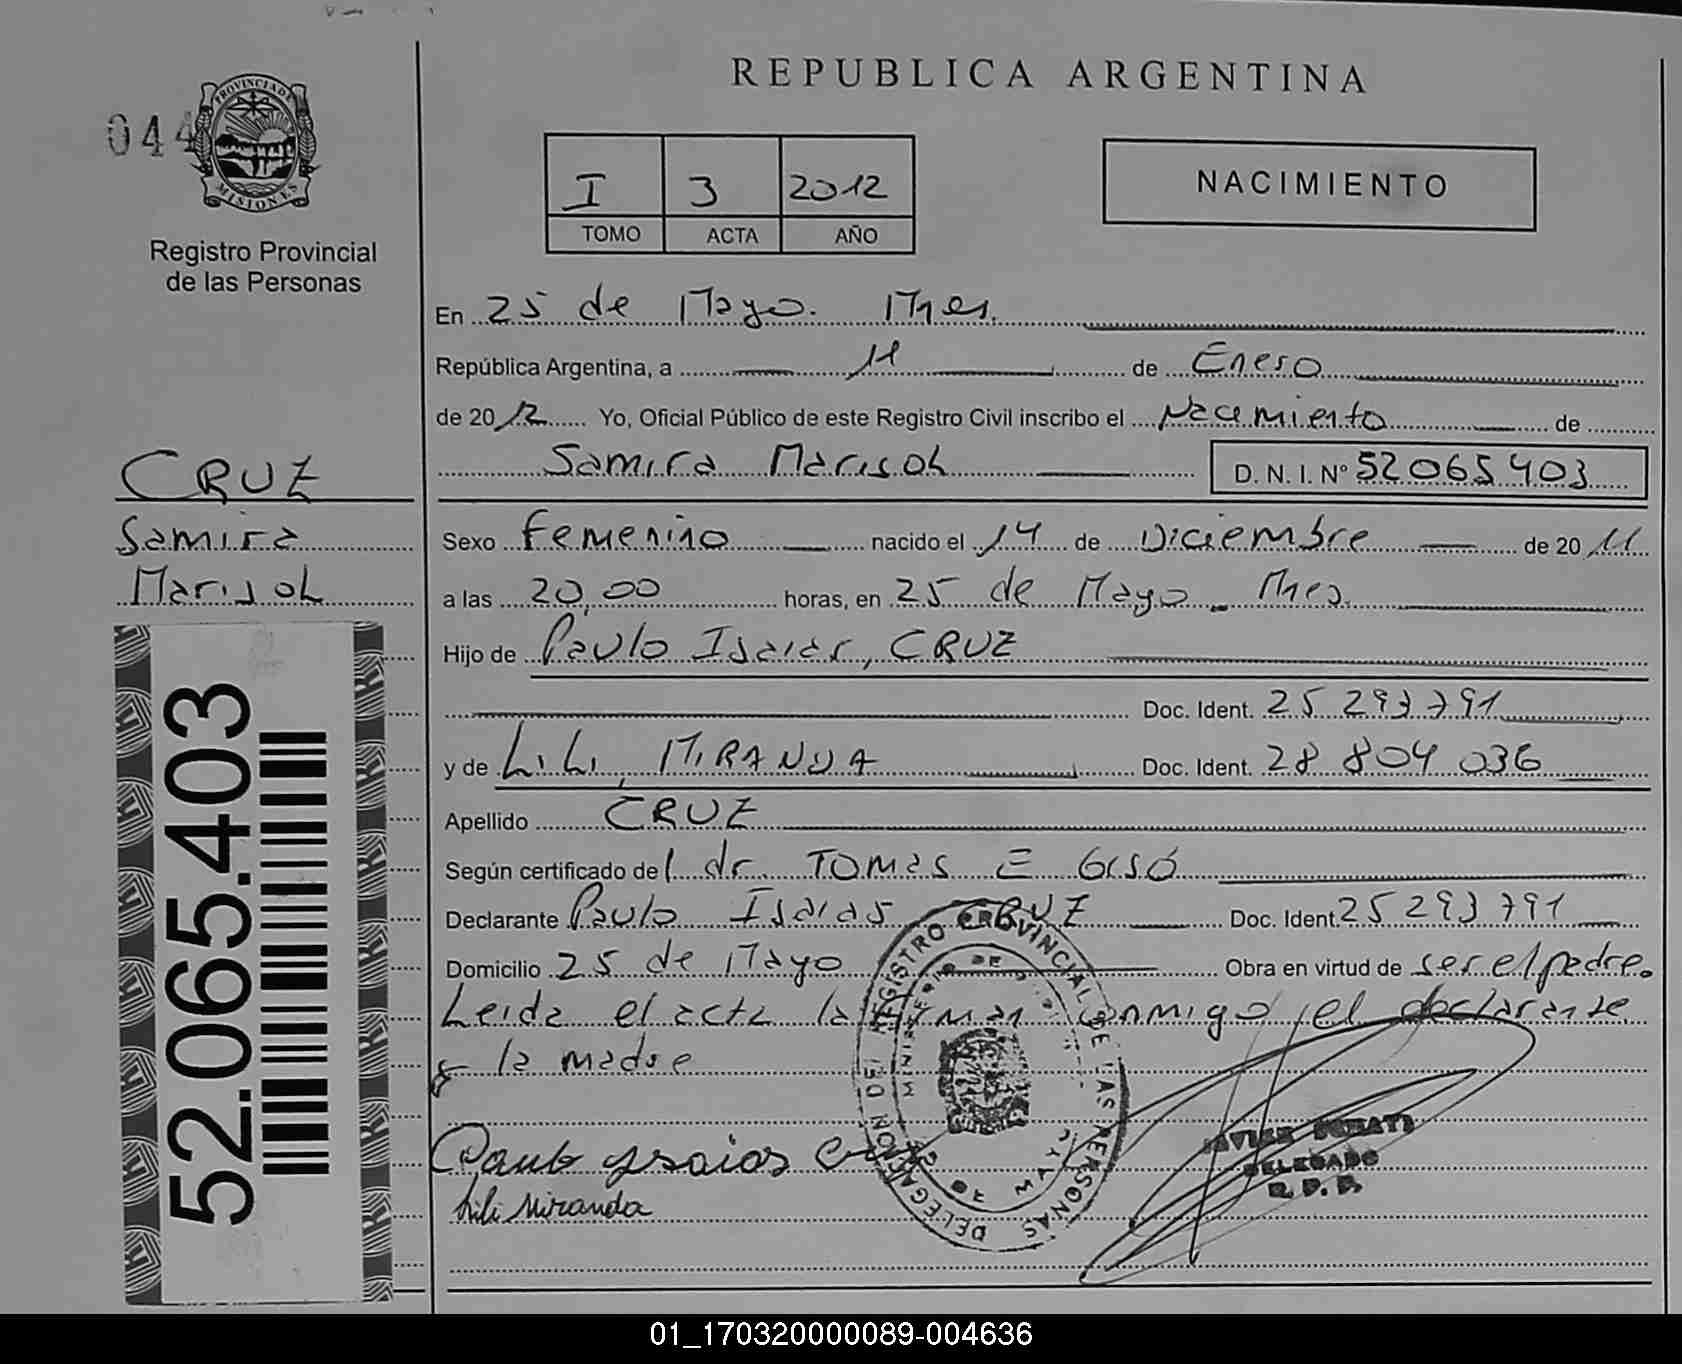 REPUBLICA ARGENTINA
044
PROVINCIA DE
MISIONES
Registro Provincial
de las Personas
I 3 2012
TOMO ACTA AÑO
NACIMIENTO
En 25 de Mayo. Mnes.
República Argentina, a 11 de Enero
de 2012 Yo, Oficial Público de este Registro Civil inscribo el Nacimiento de
Samira Marisol D. N. I. Nº 52 065 403
CRUZ
Samira
Marisol
52.065.403
Sexo Femenino nacido el 14 de Diciembre de 2011
a las 20,00 horas, en 25 de Mayo - Mnes.
Hijo de Paulo Isaias, CRUZ
Doc. Ident. 25 293 791
y de Lili, MIRANDA Doc. Ident. 28 804 036
Apellido CRUZ
Según certificado del dr. TOMAS E GISÓ
Declarante Paulo Isaias CRUZ Doc. Ident. 25 293 791
Domicilio 25 de Mayo Obra en virtud de ser el padre.
Leida el acta la firman conmigo, el declarante
y la madre
Paulo Ysaias
Lili Miranda
DELEGACION DEL REGISTRO PROVINCIAL DE LAS PERSONAS
MINISTERIO DE
25 DE MAYO
DELEGADO
R. P. P.
01_170320000089-004636